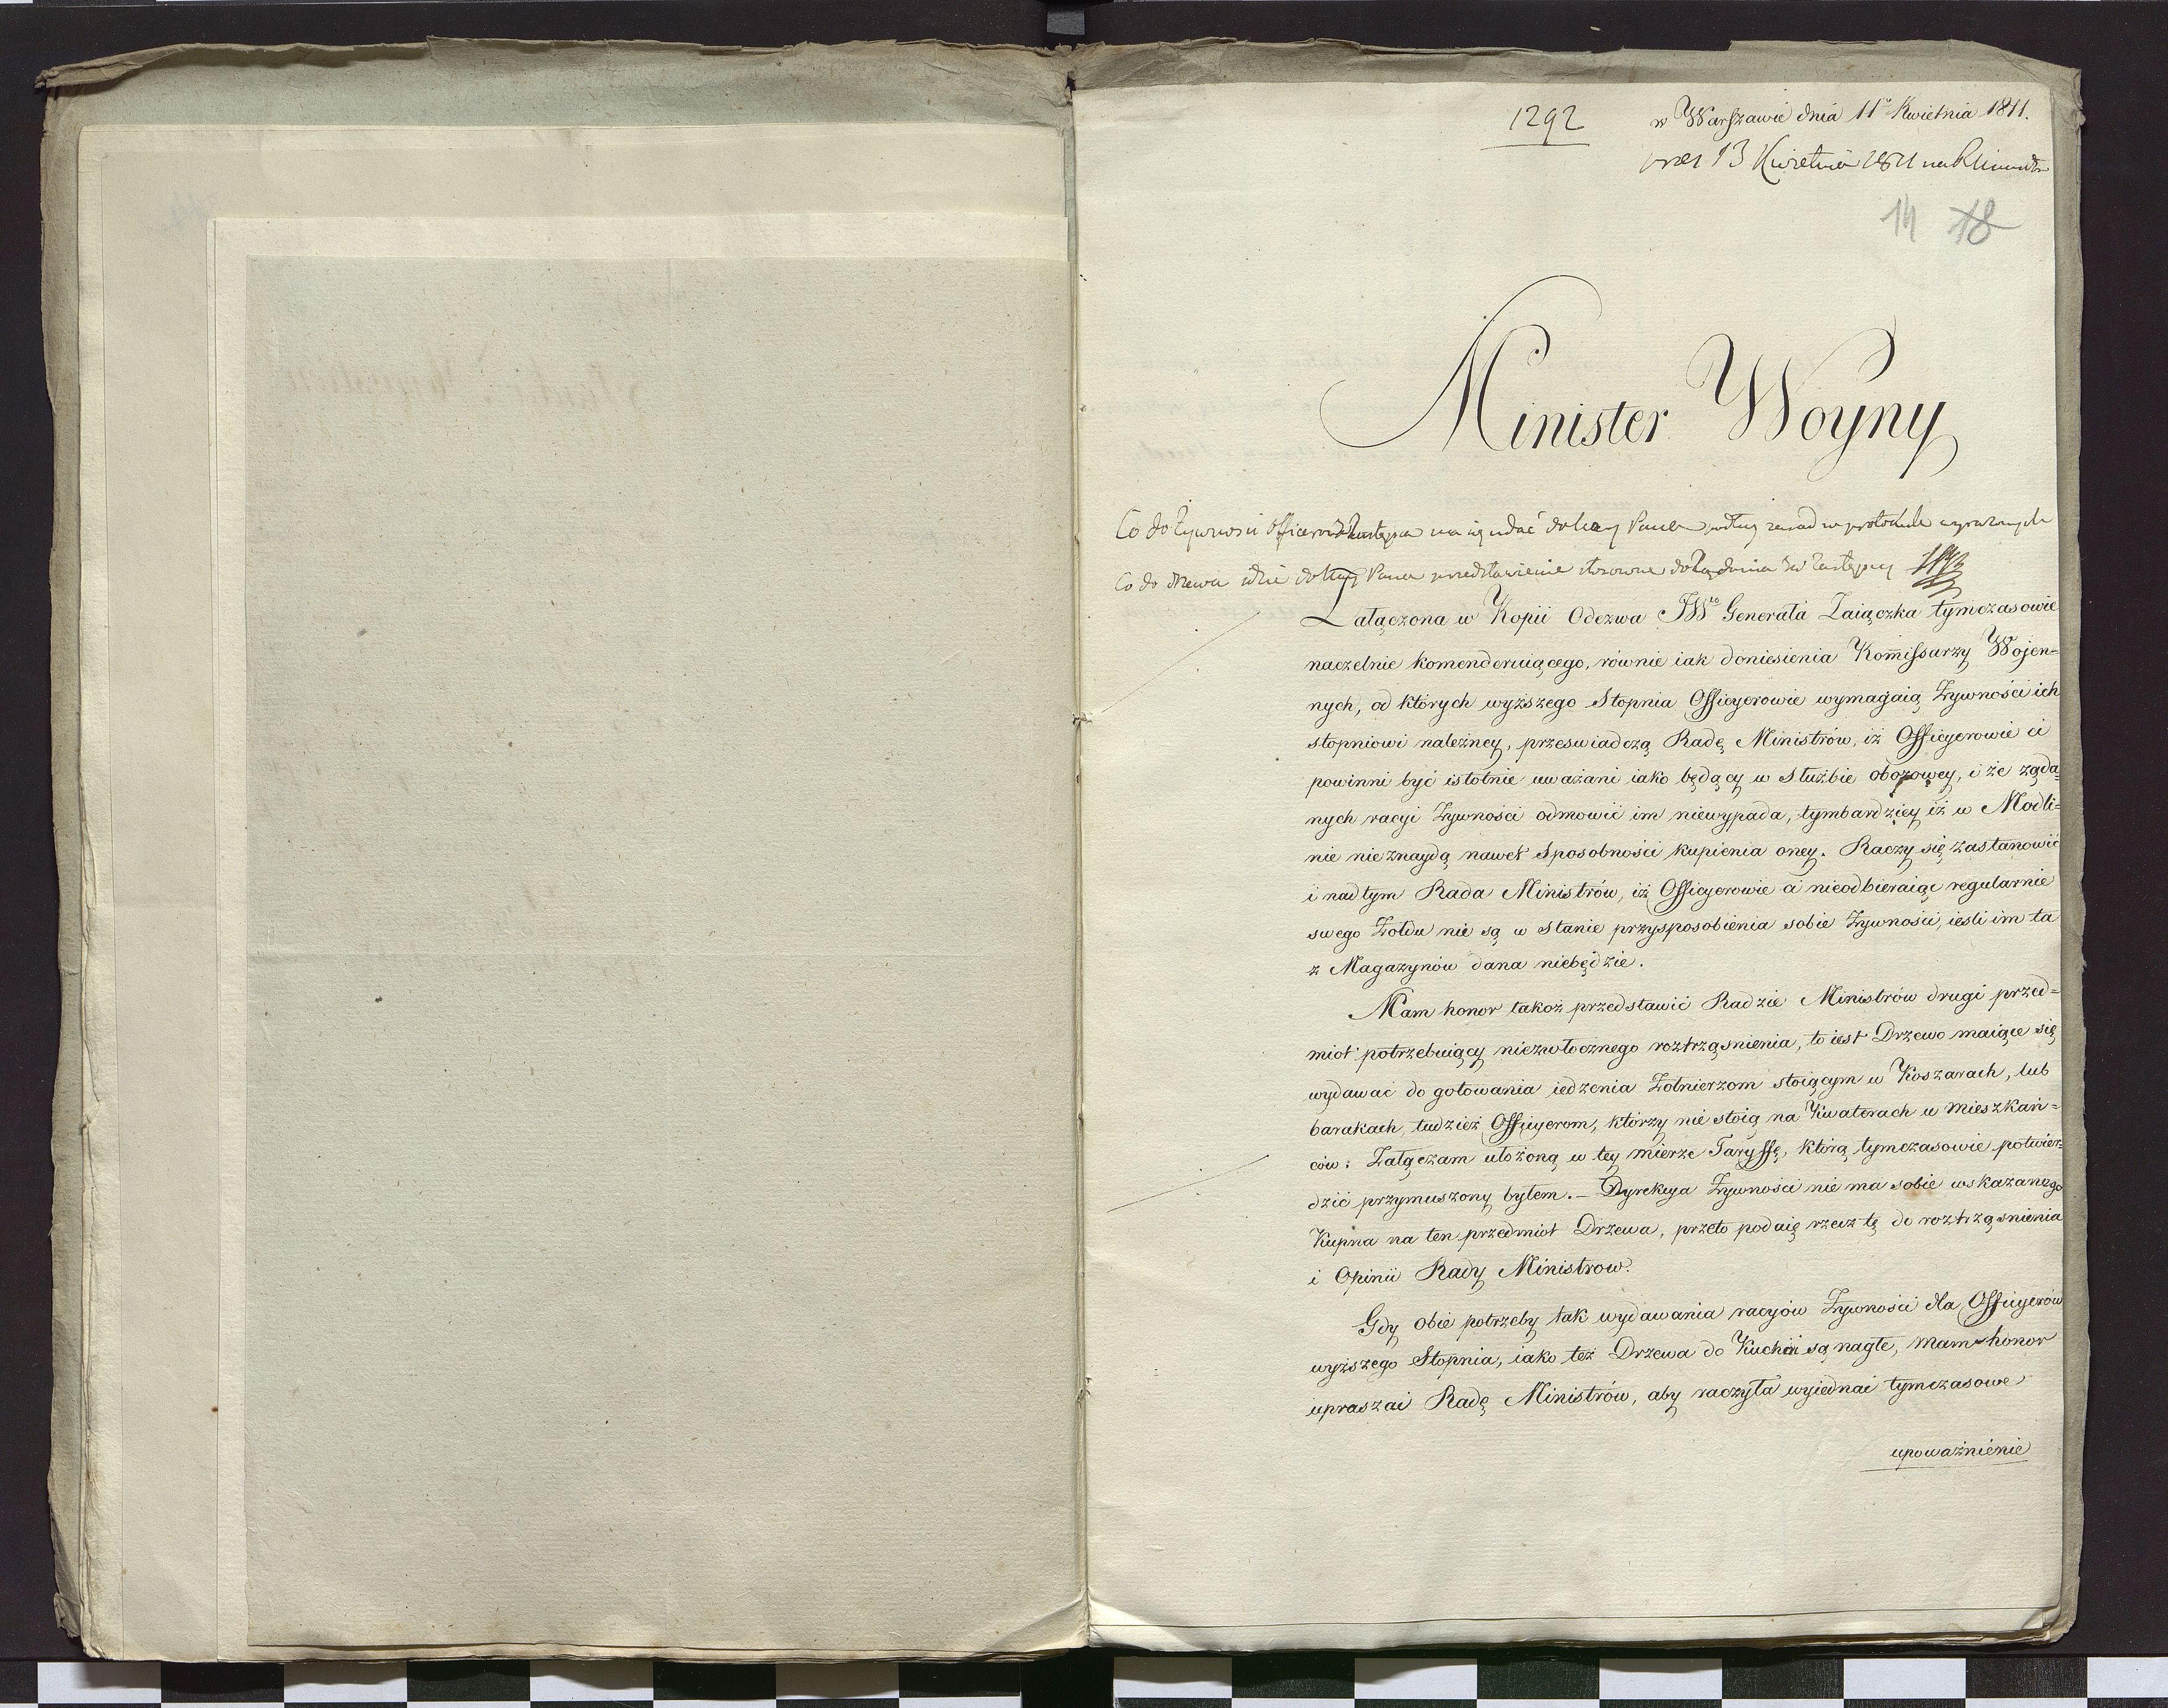 1292
w Warszawie dnia 11º Kwietnia 1811.
13 Kwietnia 1811
14 18
Minister Woyny
Co do żywnosci Officerow ma się udać do Pana według zasad w protokule wyrażonych
Co do drzewa idzie do Pana przedstawienie stosowne do żądania
Załączona w Kopii Odezwa JWgo Generała Zaiączka tymczasowie
naczelnie komenderuiącego, równie iak doniesienia Kommissarzy Wojen=
nych, od których wyższego Stopnia Officyerowie wymagaią Żywności ich
stopniowi należney, przeswiadczą Radę Ministrów, iż Officyerowie ci
powinni być istotnie uważani iako będący w służbie obozowey, i że żąda=
nych racyi Żywności odmowić im niewypada, tymbardziey iż w Modli=
nie nie znaydą nawet Sposobności kupienia oney. Raczy się zastanowić
i nad tym Rada Ministrów, iż Officyerowie ci nieodbieraiąc regularnie
swego Żołdu nie są w stanie przysposobienia sobie Żywności, iesli im ta
z Magazynów dana niebędzie.
Mam honor takoż przedstawić Radzie Ministrów drugi przed=
miot potrzebuiący niezwłocznego roztrząsnienia, to iest Drzewo maiące się
wydawać do gotowania iedzenia Żołnierzom stoiącym w Koszarach, lub
barakach, tudzież Officyerom, którzy nie stoią na Kwaterach u mieszkań=
ców: Załączam ułożoną w tey mierze Taryffę, którą tymczasowie potwier=
dzić przymuszony byłem. _ Dyrekcya Żywności nie ma sobie wskazanego
Kupna na ten przedmiot Drzewa, przeto podaię rzecz tę do roztrząsnienia
i Opinii Rady Ministrow.
Gdy obie potrzeby tak wydawania racyów Żywności dla Officyerów
wyższego Stopnia, iako też Drzewa do Kuchni są nagłe, mam honor
upraszać Radę Ministrów, aby raczyła wyiednać tymczasowe
upoważnienie